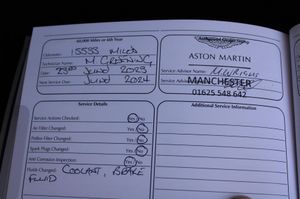 60,000 Miles or 6th Year
Odometer: 15555 Miles
Technician Name: M GREENING
Date: 23RD June 2023
Next Service Due: June 2024
ASTON MARTIN
Service Advisor Name:
Service Advisor
MANCHESTER
01625 548 642
Service Details
Service Actions Checked: Yes/No
Air Filter Changed: Yes/No
Pollen Filter Changed: Yes/No
Spark Plugs Changed: Yes/No
Anti Corrosion Inspection: Yes/No
Fluids Changed: COOLANT, BRAKE
FLUID
Additional Service Information